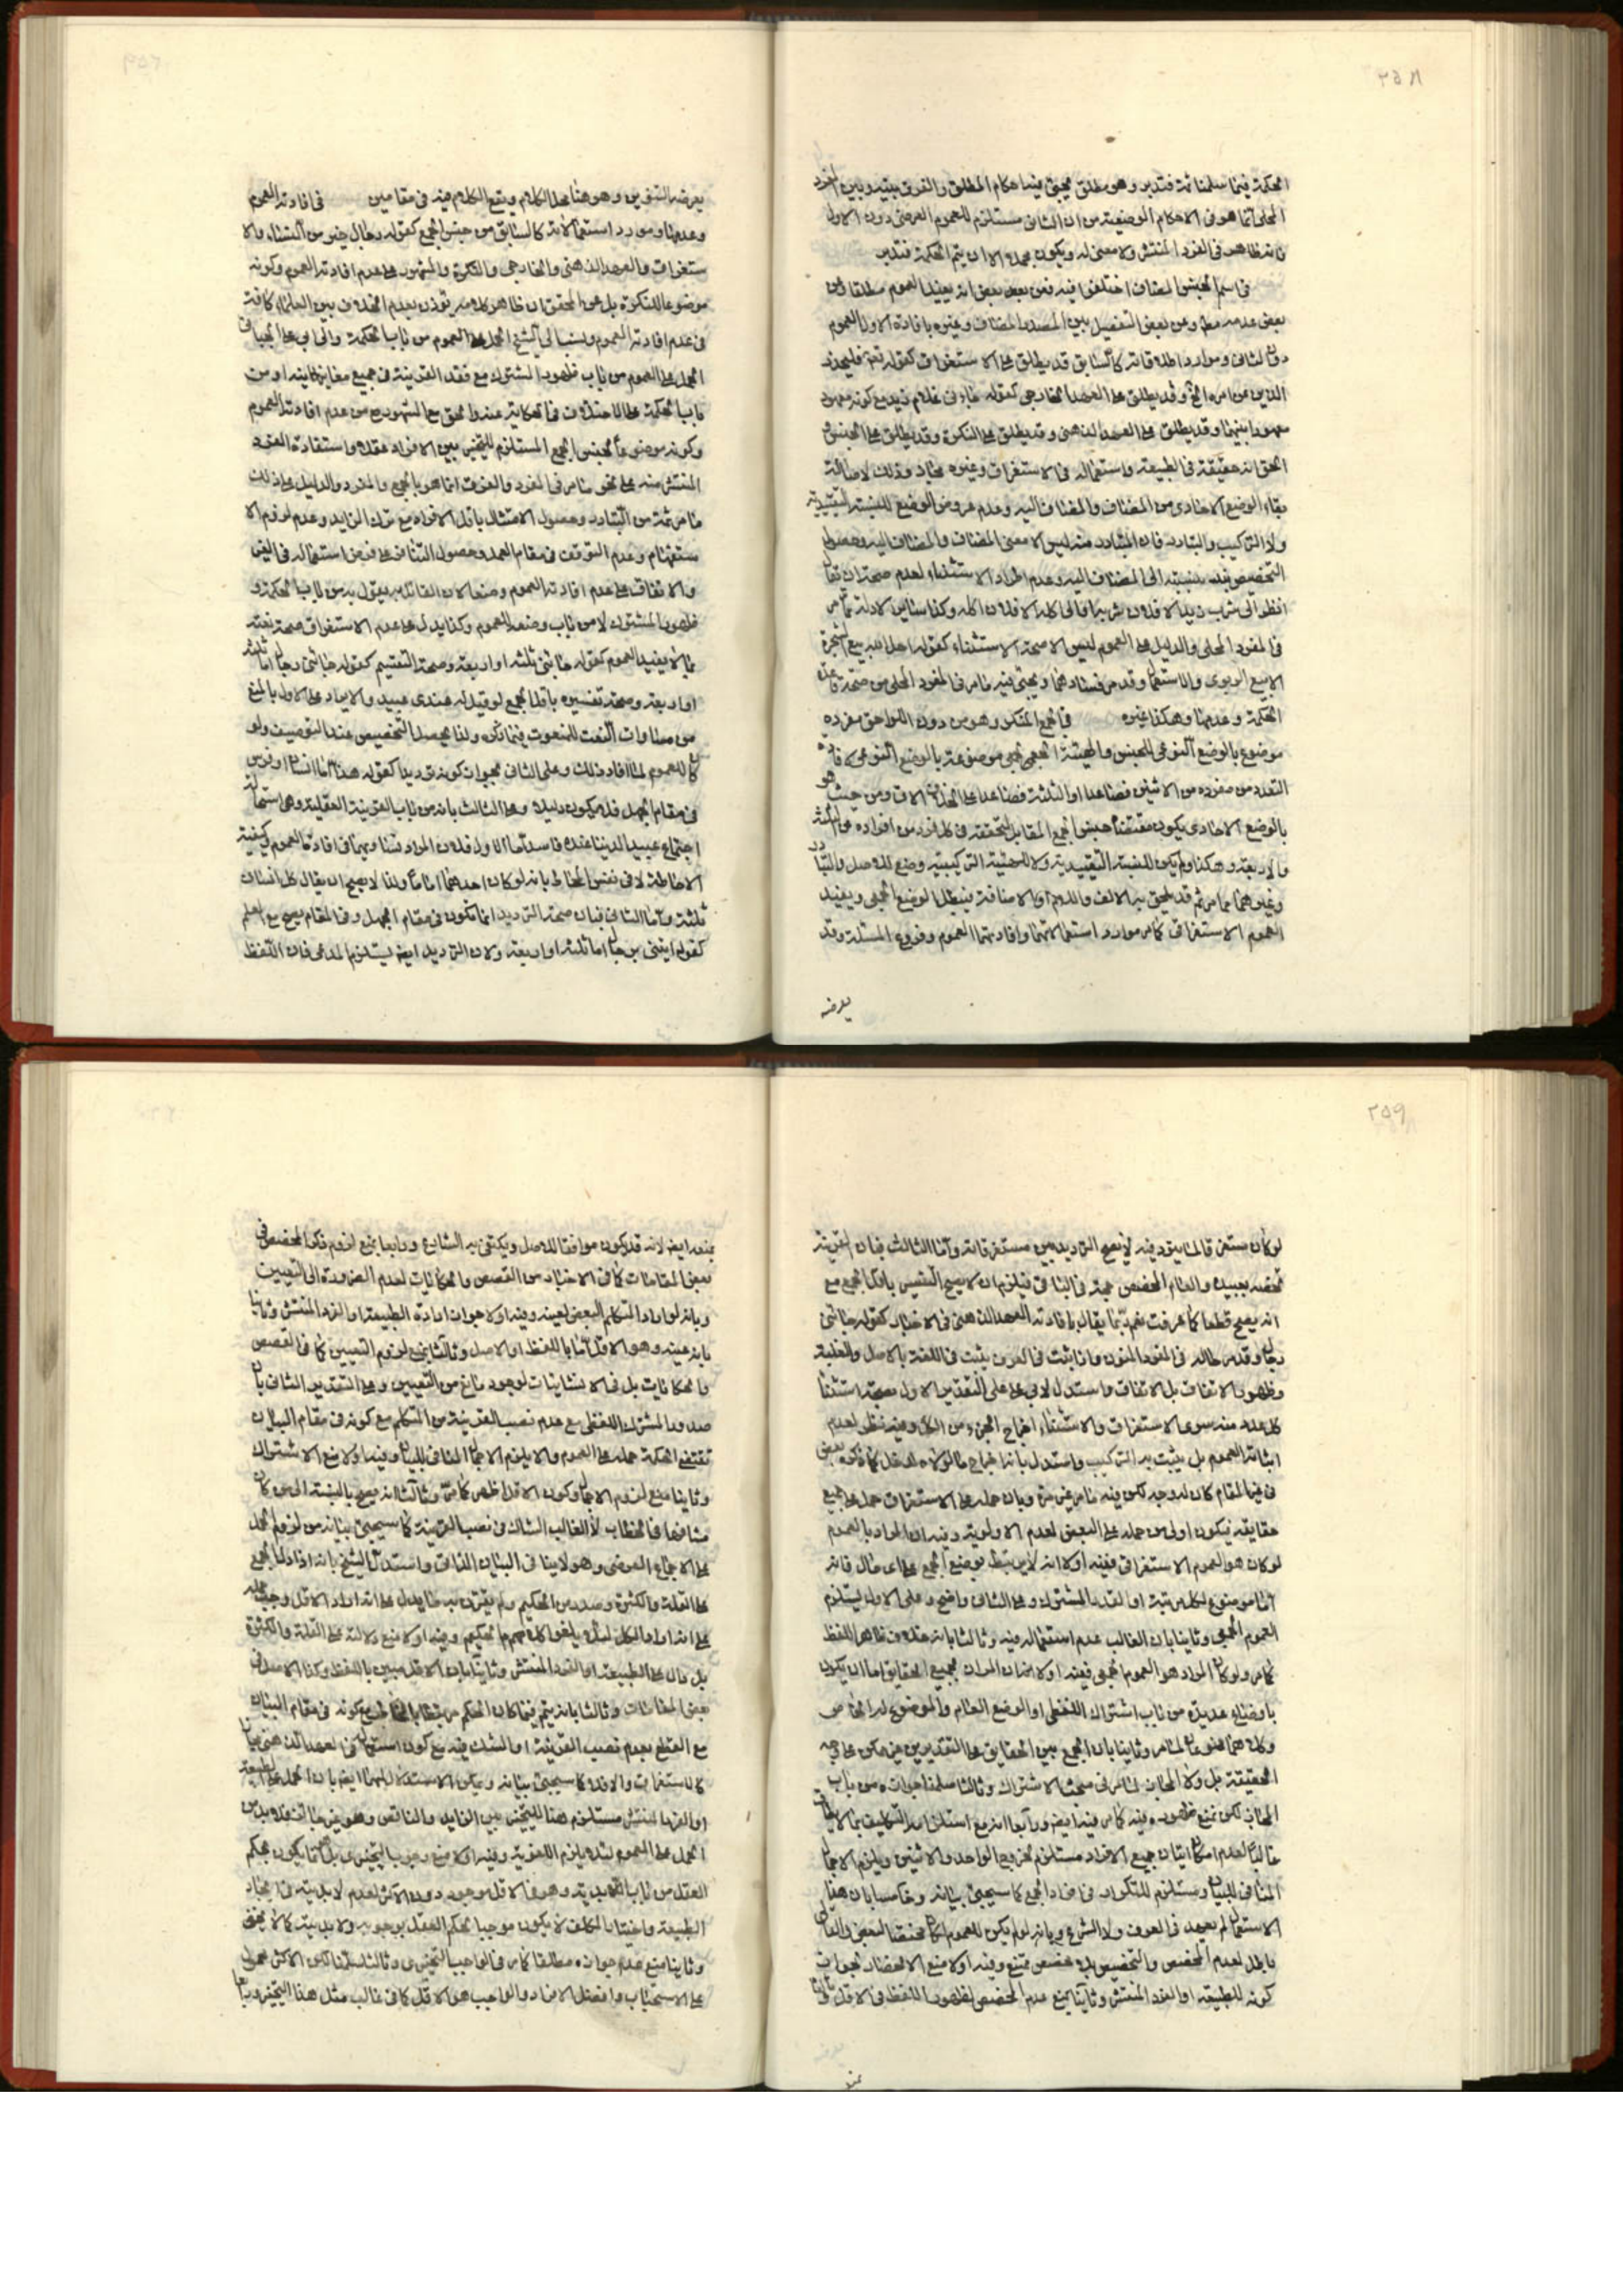 ٢٥٨
الحكمة فيما سلمنا ثمة فتدبر وهو مطلق يجيئ فيه احكام المطلق والفرق بينه وبين المفرد
المحلى انما هو في الاحكام الوضعية من ان الثاني مستلزم للعموم العرضي دون الاول
فانه ظاهر في الفرد المنتشر ولا معنى له ويكون مجملا الا ان يتم الحكمة فتدبر
في اسم الجنس المضاف اختلفوا فيه فعن بعض انه يفيد العموم مطلقا وعن
بعض عدمه مطلقا وعن بعض التفصيل بين المصدر المضاف وغيره بافادة الاول العموم
دون الثاني وموارد اطلاقاته كالسابق قد يطلق على الاستغراق كقوله تعالى فليحذر
الذين عن امره الخ وقد يطلق على العهد الخارجي كقوله جاءني غلام زيد مع كونه معهود
معهودا بينهما وقد يطلق على العهد الذهني وقد يطلق على النكرة وقد يطلق على الجنس و
الحق انه حقيقة في الطبيعة واستعماله في الاستغراق وغيره مجاز وذلك لاصالة
بقاء الوضع الافرادي من المضاف والمضاف اليه وعدم عروض الوضع للنسبة التقييدية
ولا التركيب والتبادر فان المتبادر منه ليس الا معنى المضاف والمضاف اليه وحصول
التخصيص فيه بنسبته الى المضاف اليه وعدم اطراد الاستثناء لعدم صحة ان تقال
انظر الى شرب زيد الا فلان شربه او الى اكله الا فلان اكله وكذا سائر الادلة مما مر
في المفرد المحلى والدليل على العموم ليس الا صحة الاستثناء كقوله احل الله بيع الشجرة
الا بيع الربوى والاستعمال وقد مر فسادهما ويجيئ فيه ما مر في المفرد المحلى من صحة قاعدة
الحكمة وعدمها وهكذا غيره في الجمع المنكر وهو من دون اللواحق مفرده
موضوع بالوضع النوعي للجنس والهيئة الجمعي هي موضوعة بالوضع النوعي لافادة
التعدد من مفرده من الاثنين فصاعدا او الثلثة فصاعدا على الخلاف الات ومن حيث هو
بالوضع الافرادي يكون مقتضاه جنس الجمع المقابل المتحققه في كل فرد من افراده من الثلثة
والاربعة وهكذا ولم يكن للنسبة التقييدية ولا للهيئة التركيبية وضع للاصل والتبادر
وغيرهما مما مر ثم قد يلحق به الالف واللام او الاضافة فيبطل الوضع الجمعي ويفيد
العموم الاستغراقي كما مر موارد استعمالاتهما وافادتهما العموم وفروع المسئلة وقد
يعرضه
يعرضه التنوين وهو هنا محل الكلام ويقع الكلام فيه في مقامين في افادته العموم
وعدمها وموارد استعمالاته كالسابق من جنس الجمع كقوله رجال خير من النساء والا
ستغراق والعهد الذهني والخارجي والنكرة والمشهور على عدم افادته العموم وكونه
موضوعا للنكرة بل عن المحققان ظاهر كلامه يؤذن بعدم الخلاف بين العلماء كافة
في عدم افادته العموم ونسب الى الشيخ الحمل على العموم من باب الحكمة والى ابي على الجبائي
الحمل على العموم من باب ظهور المشترك مع فقد القرينة في جميع معانيه
باب الحكمة على الاختلاف في الحكاية عنه والحق مع المشهور من عدم افادته العموم
وكونه موضوعا لجنس الجمع المستلزم للتخيير بين الافراد عقلا واستفادة الفرد
المنتشر منه على نحو ما مر في المفرد والفرق انما هو بالجمع والمفرد والدليل على ذلك
ما مر ثمة من التبادر وحصول الامتثال باقل الافراد مع ترك الزايد وعدم لزوم الا
ستفهام وعدم التوقف في مقام العمل وحصول التنافي على فرض استعماله في الغير
والاتفاق على عدم افادته العموم وضعا لان القائل به يقول به من باب الحكمة و
ظهور المشترك لا من باب وضعه للعموم وكذا يدل على عدم الاستغراق صحة نعته
بما لا يفيد العموم كقوله جائني ثلثة او اربعة وصحة التقسيم كقوله جائني رجال اما ثلثة
او اربعة وصحة تفسيره باقل الجمع لو قيل له عندي عبيد والايراد على الاول بالمنع
من مساوات النعت للمنعوت فيما ذكره ولذا يحصل التخصيص عند التوصيف ولو
كان للعموم لما افاد ذلك وعلى الثاني بجواز كونه ترديدا كقوله هذا اما انسان او فرس
في مقام الجهل فلا يكون دليلا وعلى الثالث بانه من باب القرينة العقلية وهي استحالة
اجتماع عبيد الدنيا عنده فاسد اما الاول فلان المراد تساويهما في افادة العموم كيفية
الاحاطة لا في نفس الاحاطة بانه لو كان احدهما عاما ولذا لا يصح ان يقال كل انسان
ثلثة واما الثاني فبان صحة الترديد انما تكون في مقام الجهل وفي المقام يصح مع العلم
كقوله ايتني برجال اما ثلثة او اربعة ولان الترديد ايضا يستلزم المدعى فان اللفظ
٢٥٩
لو كان مستغرقا لما يتردد فيه لا يصح الترديد بين مستغرقاته واما الثالث فبان القرينة
تخصه ببعيد والعام المخصص حجة في الباقي فيلزم ان لا يصح التفسير باقل الجمع مع
انه يصح قطعا كما عرفت نعم ربما يقال بافادته العهد الذهني في الاخبار كقوله جائني
رجال وقد مر حاله في المفرد المنون وما ثبت في العرف يثبت في اللغة بالاصل والغلبة
وظهور الاتفاق بل الاتفاق واستدل لابي على على التقدير الاول بصحة استثناء
كل عدد منه سوى الاستغراق والاستثناء اخراج الجزء من الكل وفيه نظر لعدم
اثباته العموم بل يثبت به التركيب واستدل بانه اخراج ما لولاه لدخل كما ذكره بعض
في غير المقام كان له وجه لكن فيه ما مر غير مرة وبان حمله على الاستغراق حمل على جميع
حقايقه فيكون اولى من حمله على البعض لعدم الاولوية وفيه ان المراد بالعموم
لو كان هو العموم الاستغراقي ففيه اولا انه لا يرتبط بوضع الجمع على اى حال فانه
اما موضوع لكل مرتبة او لقدر المشترك وعلى الثاني واضح وعلى الاول يستلزم
العموم الجمعي وثانيا بان الغالب عدم استعماله فيه وثالثا بانه خلاف ظاهر اللفظ
كما مر ولو كان المراد هو العموم الجمعي ففيه اولا بان المراد بجميع الحقايق اما ان يكون
باوضاع عديدة من باب اشتراك اللفظي او الوضع العام والموضوع له الخاص
وكلاهما ممنوعان لما مر وثانيا بان الجمع بين الحقايق على التقديرين غير ممكن على وجه
الحقيقة بل ولا المجاز لما مر في مبحث الاشتراك وثالثا سلمنا جوازه من باب
المجاز لكن نمنع ظهوره فيه كما مر فيه ايضا ورابعا انه مع استلزامه التكليف بما لا يطاق
غالبا لعدم امكان اتيان جميع الافراد مستلزم لخروج الواحد والاثنين ويلزم الاجمال
المنافي للبيان ومستلزم للتكرار في افراد الجمع كما سيجيئ بيانه وخامسا بان هذا
الاستعمال لم يعهد في العرف ولا الشرع وبانه لو لم يكن للعموم لكان مختصا بالبعض والتالي
باطل لعدم المخصص والتخصيص بلا مخصص ممتنع وفيه اولا منع الانحصار لجواز
كونه للطبيعة او الفرد المنتشر وثانيا بمنع عدم المخصص لظهور اللفظ في الاقل وثالثا
بمنعه ايضا لانه قد يكون موافقا للاصل ويكتفى به الشارع ورابعا بمنع لزوم ذكر المخصص في
بعض المقامات كما في الاخبار من القصص والحكايات لعدم الضرورة الى التعيين
وبانه لو اراد المتكلم البعض لعينه وفيه اولا جواز ارادة الطبيعة او الفرد المنتشر وثانيا
بانه عينه وهو الاقل اما باللفظ او الاصل وثالثا بمنع لزوم التعيين كما في القصص
والحكايات بل في الانشائيات لوجود مانع من التعيين وعلى التقدير الثاني بان
صدور المشترك اللفظي مع عدم نصب القرينة من المتكلم مع كونه في مقام البيان
تقتضي الحكمة حمله على العموم والا يلزم الاجمال المنافي للبيان وفيه اولا منع الاشتراك
وثانيا منع لزوم الاجمال وكون الاقل اظهر كما مر وثالثا انه يصح بالنسبة الى من كان
مشافها في الخطاب لا الغائب الشاك في نصب القرينة كما سيجيئ بيانه من لزوم الحمل
على الاجمال العرضي وهو لا ينافي البيان الذاتي واستدل الشيخ بانه اذا دل الجمع
على القلة والكثرة وصدر من الحكيم ولم يقترن به ما يدل على انه اراد الاقل وجب حمله
على انه اراد الكل لئلا يلغو كلام الحكيم وفيه اولا منع دلالته على القلة والكثرة
بل دال على الطبيعة او الفرد المنتشر وثانيا بان الاقل مبين باللفظ وكذا الاصل في
بعض المقامات وثالثا بانه يتم فيما كان الحكم مع كونه في مقام البيان
مع القطع بعدم نصب القرينة او الشك فيه مع كون استعماله في العهد الذهني مجازا
كالاستغراق والا فلا كما سيجيئ بيانه ويمكن الاستدلال لهما ايضا بان الحمل على الطبيعة
او الفرد المنتشر مستلزم هنا للتخيير بين الزايد والناقص وهو غير جائز فلابد من
الحمل على العموم لئلا يلزم اللغوية وفيه اولا منع وجوب التخييري بل انما يكون بحكم
العقل من باب اللابدية وهو في الاقل موجود دون الاكثر لعدم لابدية في ايجاد
الطبيعة واختيار المكلف لا يكون موجبا لحكم العقل بوجوبه ولابديته كما لا يخفى
وثانيا منع عدم جوازه مطلقا كما مر في الواجب التخييري وثالثا سلمنا لكن الاكثر محمول
على الاستحباب وافضل الافراد والواجب هو الاقل كما في غالب مثل هذا التخيير ورابعا